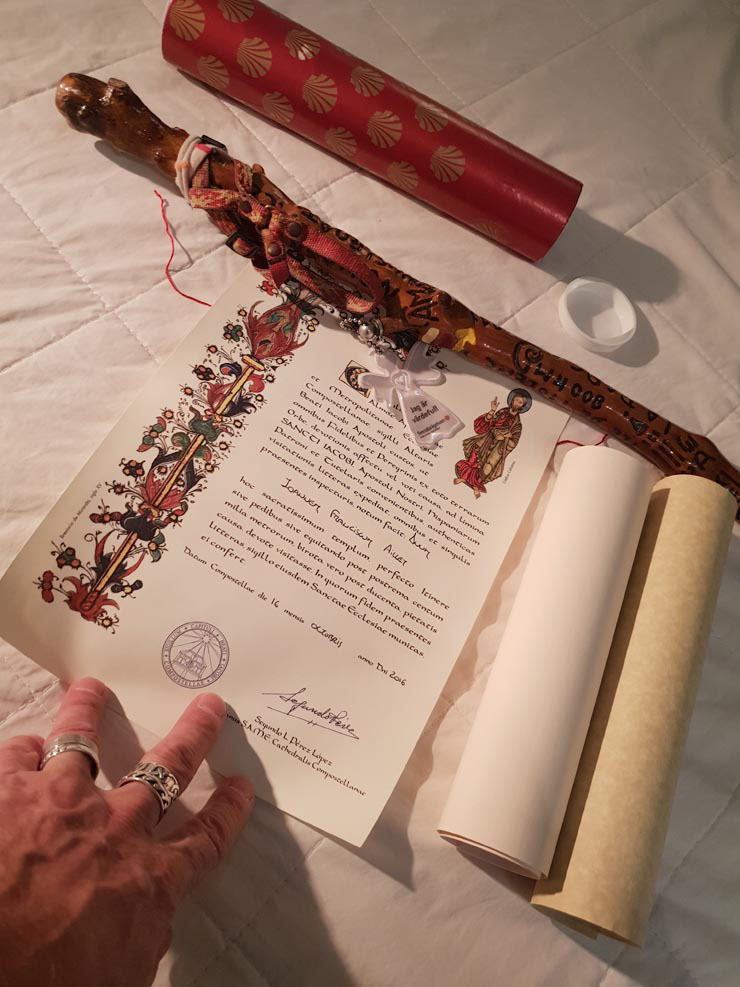 et Metropolitanae
Compostellanae sigilli Altaris
Beati Iacobi Apostoli custos, ut
omnibus Fidelibus et Peregrinis ex toto terrarum
Orbe, devotionis affectu vel voti causa, ad limina
SANCTI IACOBI Apostoli Nostri Hispaniarum
Patroni et Tutelaris convenientibus, authenticas
visitationis litteras expediat, omnibus et singulis
praesentes inspecturis notum facit: Dnum
Ioannem Franciscum
hoc sacratissimum templum, perfecto Itinere
sive pedibus sive equitando post postrema centum
milia metrorum, birota vero post ducenta, pietatis
causa, devote visitasse. In quorum fidem praesentes
litteras, sigillo eiusdem Sanctae Ecclesiae munitas,
ei confert.
Datum Compostellae die 16 mensis octobris anno Dni 2016
Segundo L. Pérez López
S.A.M.E. Cathedralis Compostellanae
Jag är
värdefull!